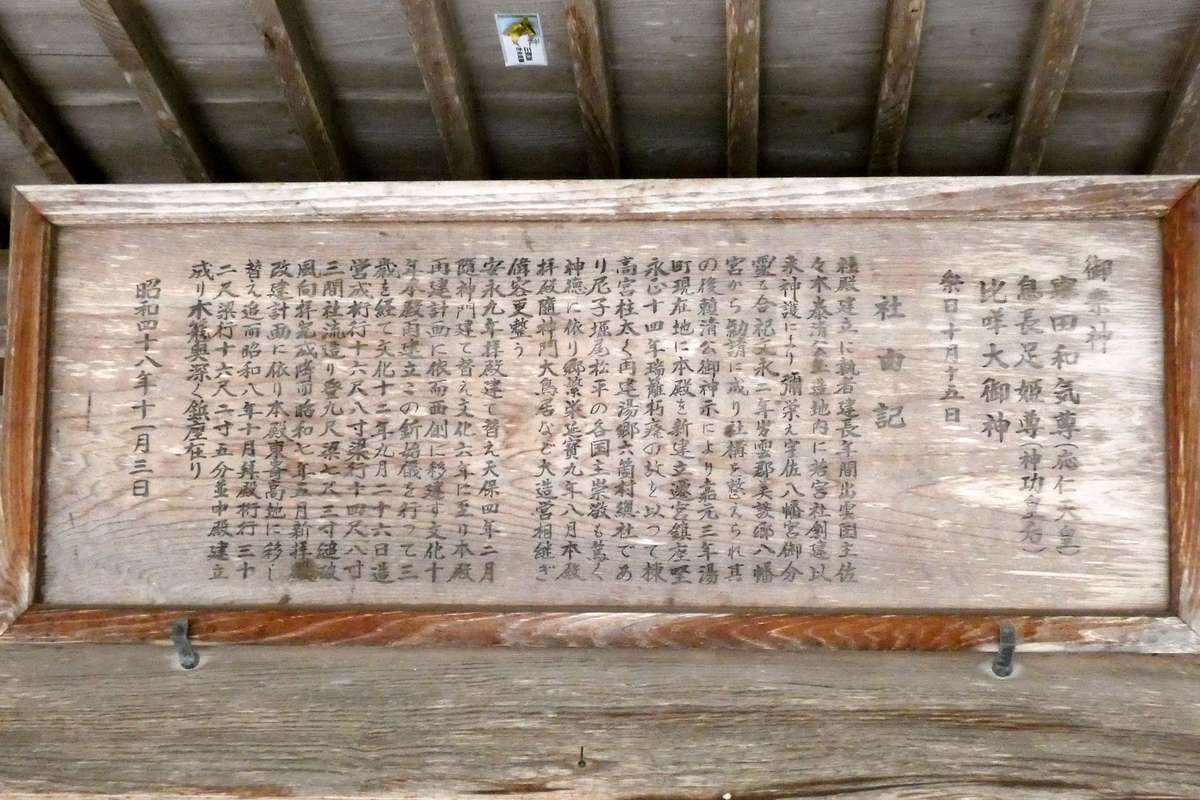 御祭神
誉田和気尊(応仁天皇)
息長足姫尊(神功皇后)
比咩大御神
祭日十月十五日
社由記
社殿建立に執者建長年間出雲国主佐
々木泰清公築造地内に若宮社創建以
来神護により彌栄え宇佐八幡宮御分
霊を合祀文永二年出雲郡美談郷八幡
宮から勧請に成り社構を整えられ其
の後頼清公御神示により嘉元三年湯
町現在地に本殿を新建立遷宮鎮座堅
永正十四年瑞籬朽廃の故を以つて棟
高宮柱太く再建湯郷六箇村總社であ
り尼子堀尾松平の各国主崇敬も篤く
神徳に依り郷榮栄延寳九年八月本殿
拝殿随神門大鳥居など大造営相継ぎ
偉容更整う
安永九年拝殿建て替え天保四年二月
随神門建て替え文化六年に至り本殿
再建計画に依而西側に移建す文化十
年本殿再建立この釿始儀を行って三
歳を経て文化十二年九月二十六日造
営成桁行十六尺八寸梁行十四尺八寸
三間社流造り登九尺梁七尺三寸縋破
風向拝完成降而昭和七年五月新拝殿
改建計画に依り本殿東高地に移し
替え追而昭和八年十月拝殿桁行三十
二尺梁行十六尺二寸五分並中殿建立
成り木篭奥深く鎮座在り
昭和四十八年十一月三日